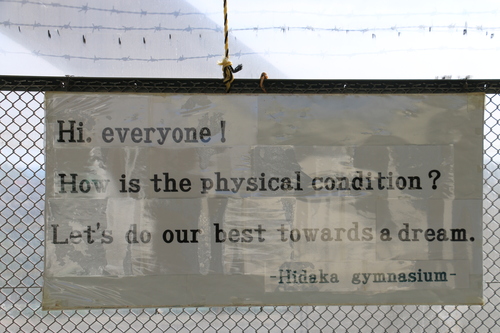 Hi. everyone!
How is the physical condition?
Let's do our best towards a dream.
-Hidaka gymnasium-